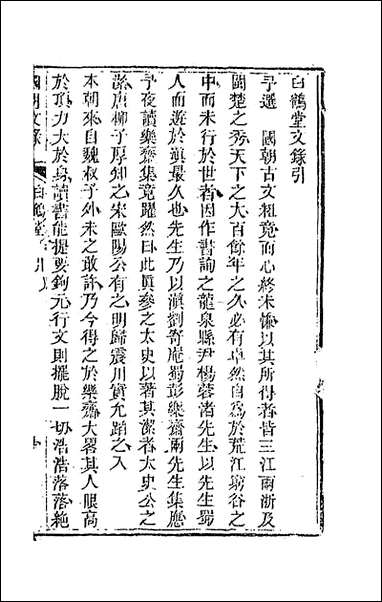 白鶴堂文錄引
予選　國朝古文粗竟而心終未慊以其所得者皆三江兩浙及
閩楚之秀天下之大百餘年之久必有卓然自爲於荒江窮谷之
中而未行於世者因作書詢之龍泉縣尹楊蓉渚先生以先生蜀
人而遊於滇最久也先生乃以滇劉寄庵蜀彭樂齋兩先生集應
予夜讀樂齋集竟躍然曰此真參之太史以著其潔者太史公之
潔唐柳子厚知之宋歐陽公有之明歸震川實允蹈之入
本朝來自魏叔子外未之敢許乃今得之於樂齋大畧其人眼高
於頂力大於身讀書能提要鉤元行文則擺脫一切浩浩落落絶
國朝文錄　白鶴堂　引